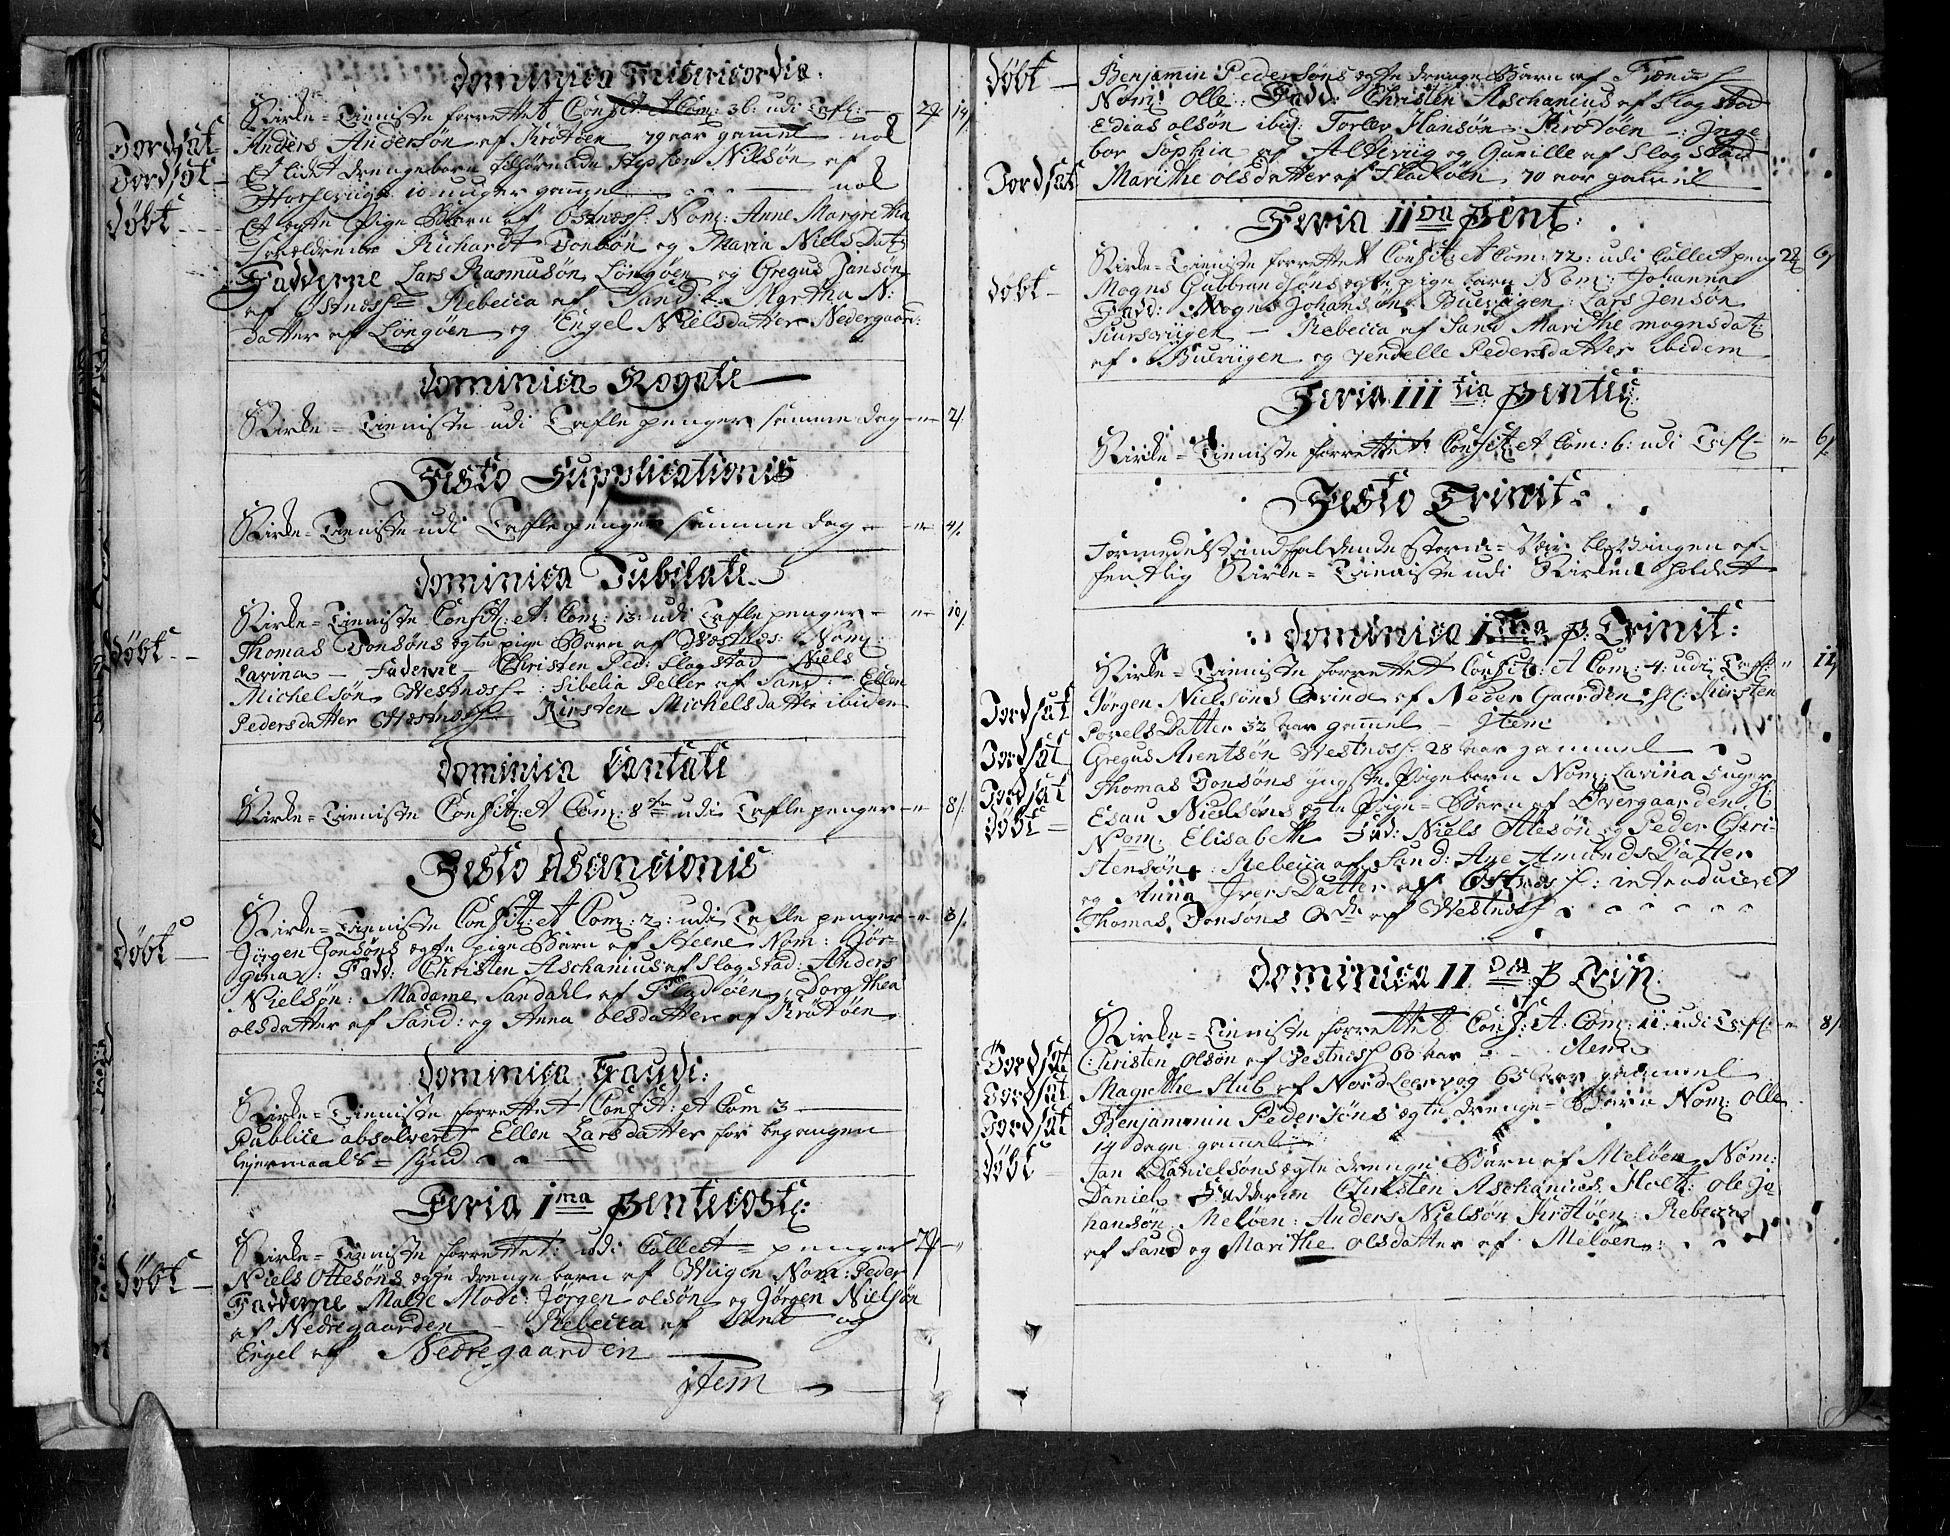 Dominica Misericordia:
Kirke=Tienniste forrettet Confit: et Com: 36: udi Tafl:
Jordsat
Anders Andersøn af Krotøen 79 aar gamel
Jordsat
Et lidet drengebarn Stephen Nilsøn af
10 uuger gamel
døbt
Et ægte Pige Barn af Østnæss: Nom: Anne Margretha
Forældrene Richardt Jonsøn og Maria Niels Dat:
Fadderne Lars Rasmusøn Løngøen og Gregus Jansøn
af Østnæss Rebecca af Sand: Mgrtha N:
datter af Løngøen og Engel Nielsdatter Nedergaar:
Dominica Rogate
Kirke=Tienniste udi Tafle penger samme dag 2/.
Festo Supplicationis
Kirke=Tienniste udi Tafle penger samme dag 4/.
Dominica Jubilate
Kirke=Tienniste Confit: et: Com: 13: udi Tafle penger 10/.
døbt
Thomas Jonsøns ægte pige Barn af Wæstnæs: Nom:
Lavina Faderne Christen Ped: Slogstad Niels
Michelsøn Westnæss: Sibelia Peller af Sand: Ellen
Pedersdatter Westnæss Kirsten Michelsdatter ibidem
Dominica Cantate
Kirke=Tienniste Confit: et Com: 8 udi Tafle penger 8/.
Festo Asancionis
Kirke=Tienniste Confit: et Com: 2: udi Tafle penger 3/.
døbt
Jørgen Jonsøns ægte pige Barn af Steene Nom: Jør-
gina: Fadd: Christen Aschanius af Slogstad: Anders
Nielsøn: Madame Sandahl af Fladøen, Dorothea
olsdatter af Sand: og Anna olsdatter af Krotøen
Dominica Exaudi:
Kirke=Tienniste forrettet Confit: et Com 3
Publice absolveret Ellen Larsdatter for begangen
leiermaals=synd
Feria 1ma Pentecost:
Kirke=Tienniste forrettet: udi Collect=penger
døbt
Niels Ottesøns ægte drenge barn af Wiigen Nom: Peder
Fadderne Malte Modi: Jørgen olsøn og Jørgen Nielsøn
af Nedregaarden Rebecca af Sand og
Engel af Nedregaarden
item
døbt
Benjamin Pedersøns ægte drenge Barn af
Nom: Olle: Fadd: Christen Aschanius af Slogstad
Edias olsøn ibid: Torlev Hansøn Krotøen: Inge
bor Sophia af Alderviig og Gunille af Slogstad
Jordsat
Marithe olsdatter af Fladøen 70 aar gamel
Feria IIda Pent:
Kirke=Tienniste forrettet Confit: et Com: 72: udi Collect peng 6/
døbt
Mogns Gulbrandsøns ægte pige barn Nom: Johanna
Fadd: Mogns Johansøn Buevigen: Lars Jensøn
Rebecca af Sand Marithe mognsdat:
af Bueviigen og Pedersdatter ibidem
Feria IIItia Pentec:
Kirke=Tienniste forrettet: Confit: et Com: 6: udi Tafl 6/.
Festo Trinit:
Formedelst indfaldende storm=Vær blev ingen of-
fentlig Kirke=Tienniste udi Kirken holdet
Dominica 1ma p: Trinit:
Kirke=Tienniste forrettet Confit: et Com: 4: udi Tafl: 11/
Jordsat
Jørgen Nielsøns Qvinde af Neder Gaarden sl: Kirsten
Povels Datter 32 aar gammel Item
Jordsat
Gregus Arentsøn Westnæss: 28 aar gammel
Jordsat
Thomas Jonsøns yngste Pigebarn Nom: Lavina 5 uger
døbt
Esau Nielsøns ægte Pige=Barn af Øvergaarden
Nom: Elisabeth Fad: Niels Olesøn og Peder Chri-
stensøn: Rebecca af Sand: Ane Amunds Datter
og Anna Ivers Datter af Østnæss: introduceret
Thomas Jonsøns Qde af Westnæss
Dominica IIda P Trin:
Kirke=Tienniste forrettet Conf: et: Com: 11: udi Tafl: 8/
Jordsat
Christen olsøn af Vestnæss 60 aar Item
Jordsat
Magrethe Stub af Nordleervog 65 aar gammel
Jordsat
Benjammin Pedersøns ægte drenge=Barn Nom: Olle
14 dage gamel
døbt
Jan Danielsøns ægte drenge Barn af Meløen Nom:
Daniel Fadderne Christen Aschanius Holt: ole Jo-
hansøn Meløen: Anders Nielsøn Krotøen: Rebecca
af Sand og Marithe olsdatter af Meløen